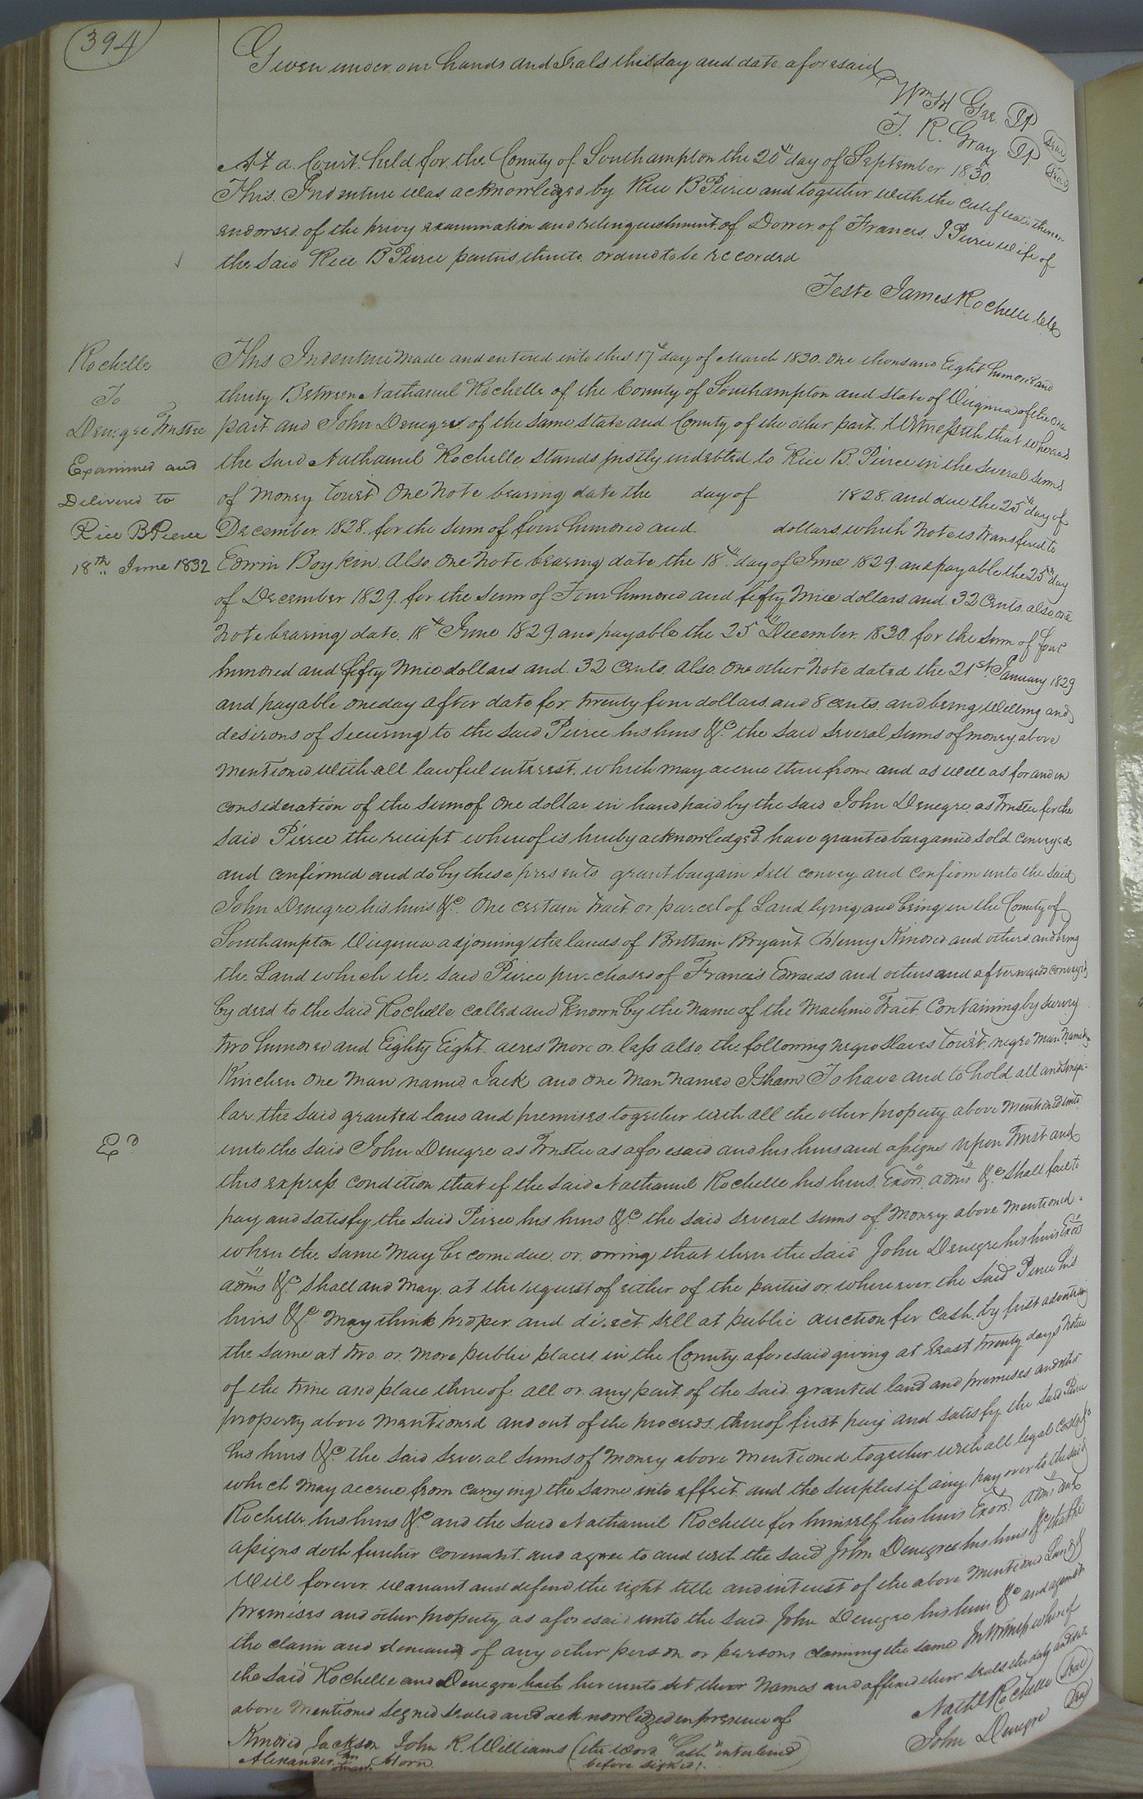 394
Given under our hands and Seals this day and date aforesaid
Wm H Gee JP Seal
T. R. Gray JP Seal
At a Court held for the County of Southampton the 20th day of September 1830.
This Indenture was acknowledged by Rice B Pierce and together with the Certificate thereon
endorsed of the privy examination and relinquishment of Dower of Frances J Pierce wife of
the said Rice B Pierce parties thereto ordered to be recorded
Teste James Rochelle Clk
Rochelle
To
Denegre Trustee
Examined and
Delivered to
Rice B Pierce
18th June 1832
This Indenture Made and entered into this 17th day of March 1830. One thousand Eight hundred and
thirty Between Nathaniel Rochelle of the County of Southampton and State of Virginia of the one
part and John Denegre of the same state and County of the other part. Witnesseth that whereas
the said Nathaniel Rochelle stands justly indebted to Rice B. Pierce in the several sums
of money towit One note bearing date the day of 1828. and due the 25th day of
December 1828. for the sum of four hundred and dollars, which note is transfered to
Edwin Boykin. Also One note bearing date the 18th day of June 1829. and payable the 25th day
of December 1829. for the sum of Four hundred and fifty Nine dollars and 32 Cents. also one
note bearing date. 18th June 1829 and payable the 25th December. 1830. for the sum of four
hundred and fifty Nine dollars and 32 cents. Also, One other note dated the 21st January 1829
and payable one day after date for twenty four dollars and 8 cents. and being Willing and
desirous of securing to the said Pierce his heirs &c. the said several sums of money above
mentioned with all lawful interest which may accrue therefrom and as well as for and in
consideration of the sum of One dollar in hand paid by the said John Denegre as Trustee for the
said Pierce the receipt whereof is hereby acknowledged have granted bargained sold conveyed
and confirmed and do by these presents grant bargain sell convey and confirm unto the said
John Denegre his heirs &c. One certain Tract or parcel of Land lying and being in the County of
Southampton Virginia adjoining the lands of Brittain Bryant Henry Kindred and others and being
the Land which the said Pierce purchased of Francis Edwards and others and afterwards conveyed
by deed to the said Rochelle called and known by the name of the Machine Tract Containing by survey
two hundred and Eighty Eight acres more or less also the following negro slaves towit. negro man named
Kinchen One man named Jack and one man named Isham To have and to hold all and singu-
lar the said granted land and premises together with all the other property above mentioned unto
unto the said John Denegre as Trustee as aforesaid and his heirs and assigns Upon Trust and
Ed
this express condition that if the said Nathaniel Rochelle his heirs Exors. adms. &c shall fail to
pay and satisfy the said Pierce his heirs &c the said several sums of money above mentioned.
when the same may become due or owing that then the said John Denegre his heirs Exors
adms &c shall and may, at the request of either of the parties or whenever the said Pierce his
heirs &c may think proper and direct sell at public auction for cash by first advertising
the same at two or more public places in the County aforesaid giving at least twenty days notice
of the time and place thereof all or any part of the said granted land and premises and other
property above mentioned and out of the proceeds thereof first pay and satisfy the said Pierce
his heirs &c. the said several sums of money above mentioned together with all legal costs &c
which may accrue from carrying the same into effect and the surplus if any pay over to the said
Rochelle his heirs &c and the said Nathaniel Rochelle for himself his heirs Exors. adms. and
assigns doth further covenant and agree to and with the said John Denegre his heirs &c that he
Will forever warrant and defend the right title and interest of the above mentioned Land &
premises and other property as aforesaid unto the said John Denegre his heirs &c and against
the claim and demand of any other person or persons claiming the same In Witness whereof
the said Rochelle and Denegre hath hereunto set their names and affixed their seals the day and date
above mentioned Signed sealed and acknowledged in presence of
Nathl Rochelle Seal
John Denegre Seal
Kindred Jackson John R. Williams (the word "Cash" interlined
before signed).
Alexander Morn